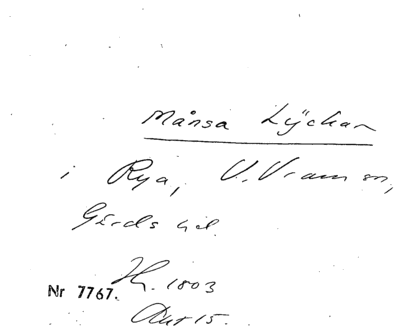 Månsa Lyckan
i Rya, V. Vram sn,
Gärds hd.
H. 1803
Nr 7767.
Akt 15.